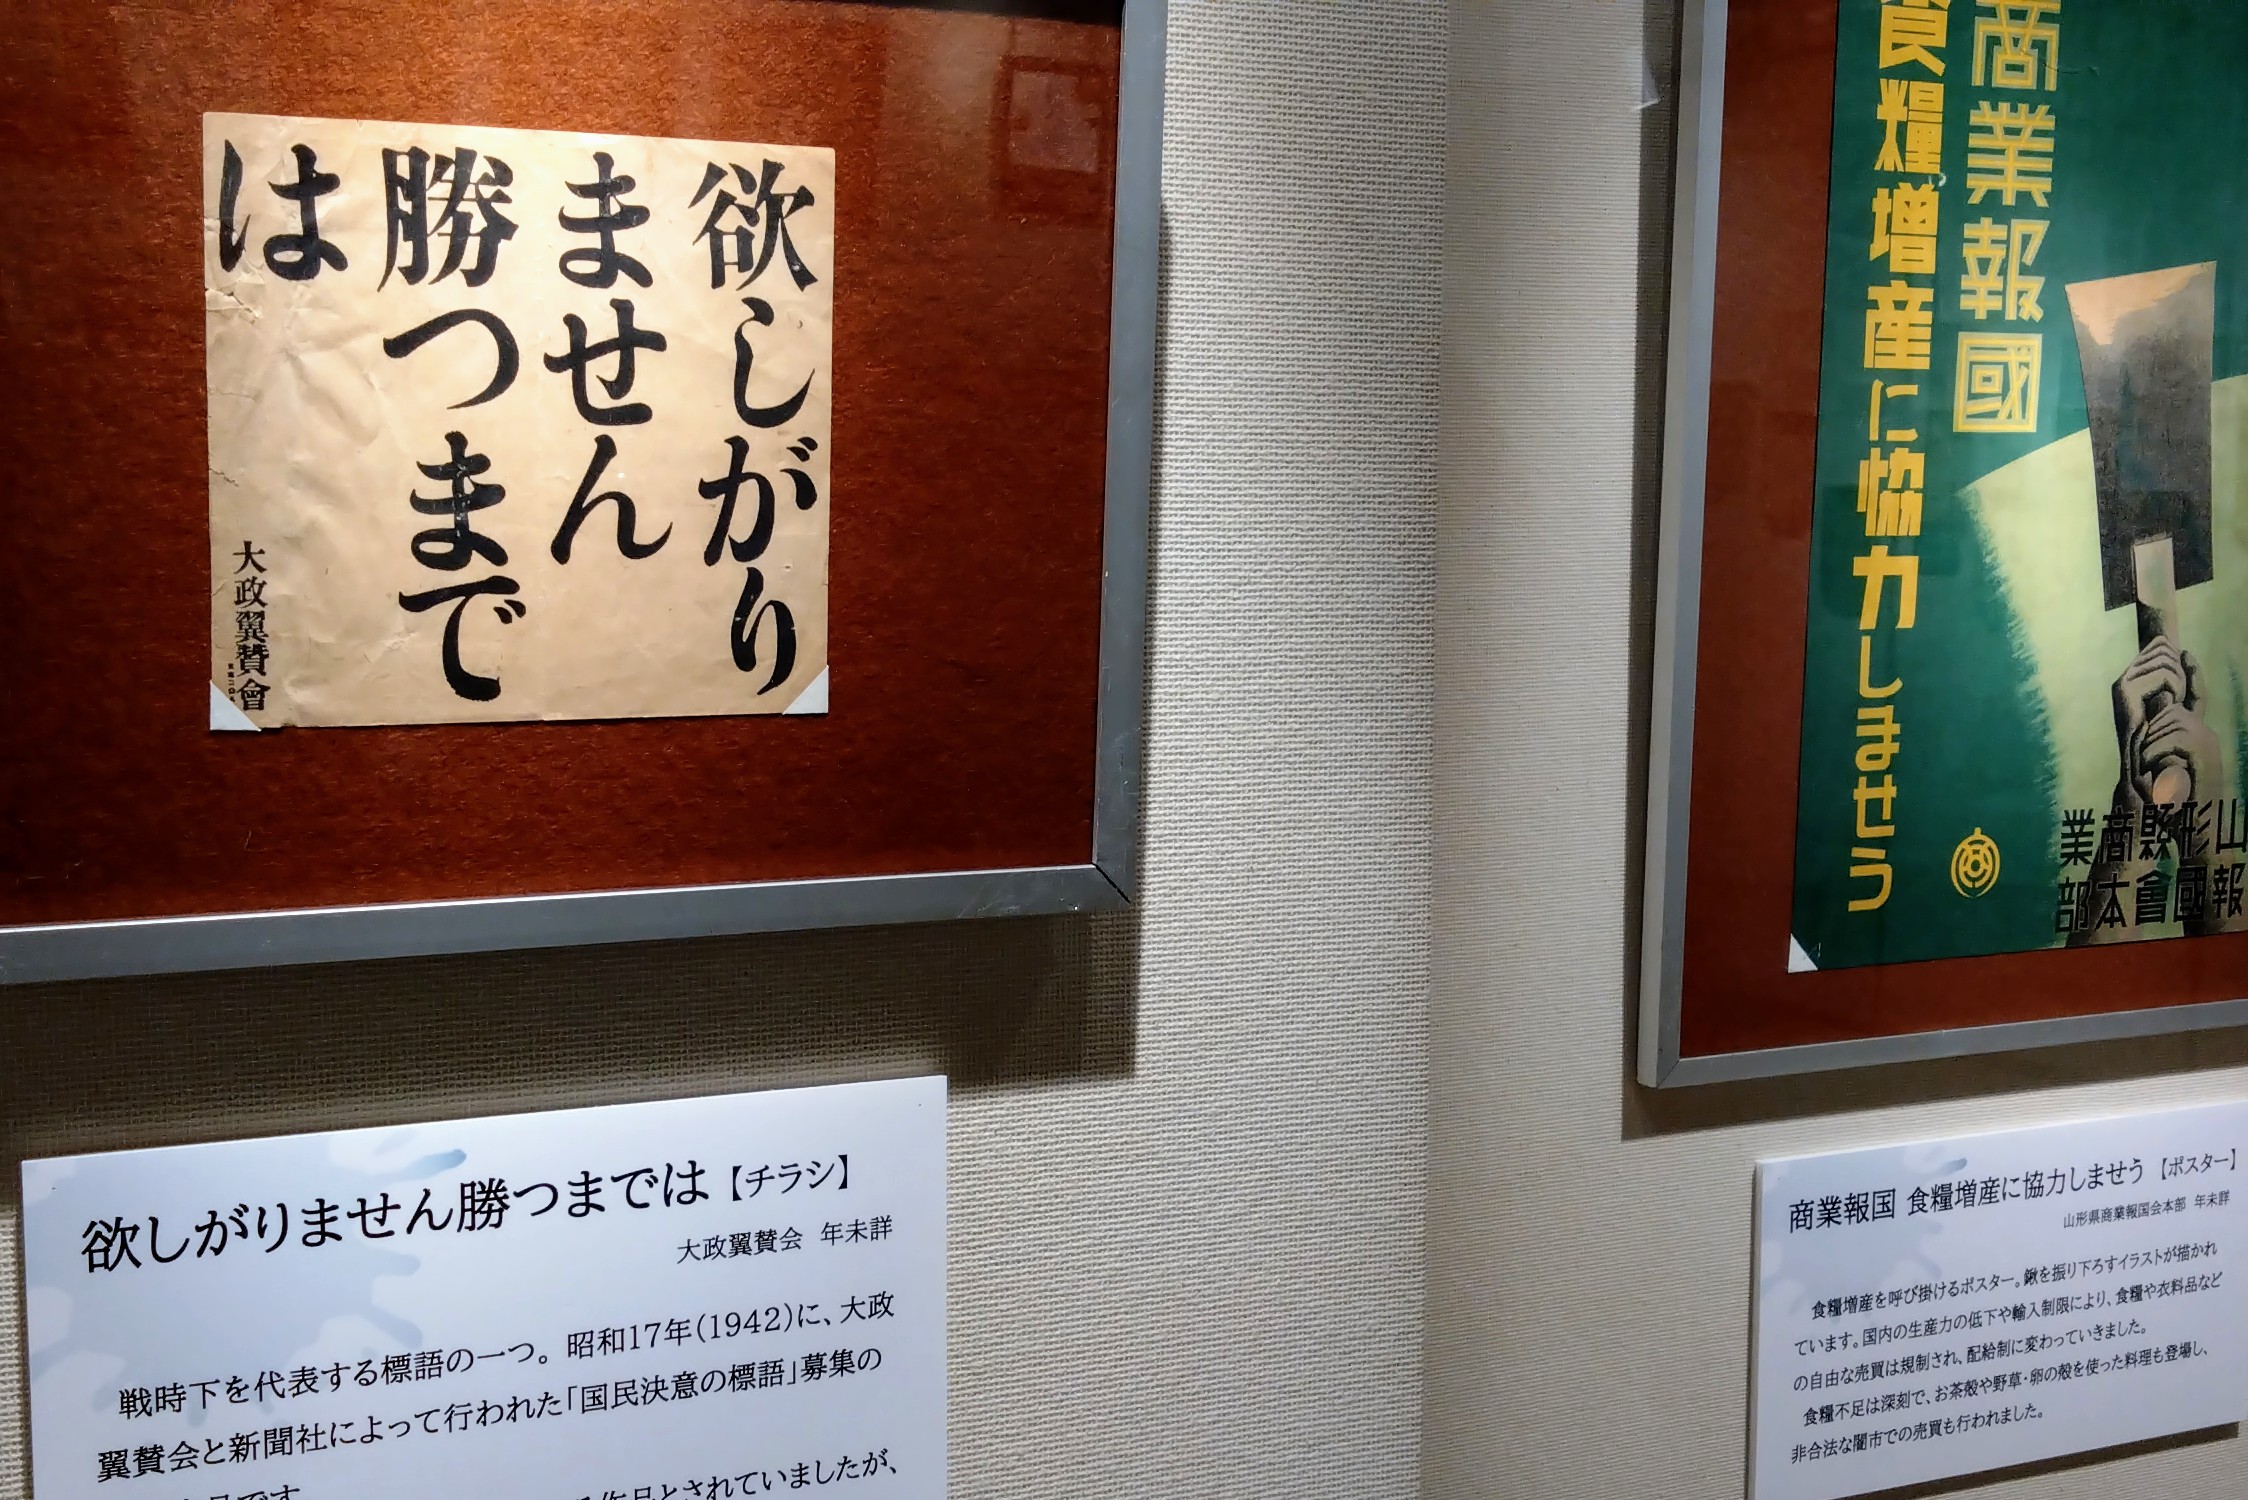 欲しがり
ません
勝つまで
は
大政翼賛會
欲しがりません勝つまでは【チラシ】
大政翼賛会 年未詳
戦時下を代表する標語の一つ。昭和17年(1942)に、大政
翼賛会と新聞社によって行われた「国民決意の標語」募集の
品です
作品とされていましたが、
商業報國
食糧増産に協力しませう
山形縣商業
報國會本部
商業報国 食糧増産に協力しませう【ポスター】
山形県商業報国会本部 年未詳
食糧増産を呼び掛けるポスター。鍬を振り下ろすイラストが描かれ
ています。国内の生産力の低下や輸入制限により、食糧や衣料品など
の自由な売買は規制され、配給制に変わっていきました。
食糧不足は深刻で、お茶殻や野草・卵の殻を使った料理も登場し、
非合法な闇市での売買も行われました。